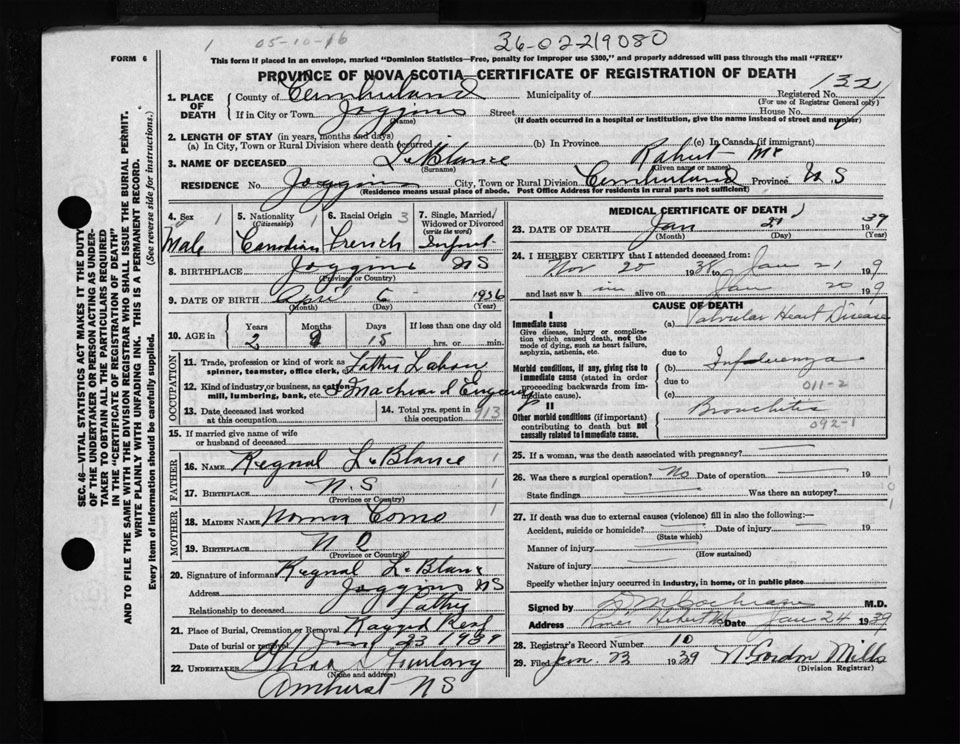 1 05-10-16 36-02-219080
FORM 6 This form if placed in an envelope, marked "Dominion Statistics—Free, penalty for improper use $300," and properly addressed will pass through the mail "FREE"
PROVINCE OF NOVA SCOTIA—CERTIFICATE OF REGISTRATION OF DEATH
132
1. PLACE OF DEATH County of Municipality of Registered No.
(For use of Registrar General only)
If in City or Town Joggins Street House No.
(Name) (If death occurred in a hospital or institution, give the name instead of street and number)
2. LENGTH OF STAY (in years, months and days)
(a) In City, Town or Rural Division where death occurred (b) In Province (c) In Canada (if immigrant)
3. NAME OF DECEASED LeBlance
(Surname) (Given name or names)
RESIDENCE No. Joggins City, Town or Rural Division Province N S
(Residence means usual place of abode. Post Office Address for residents in rural parts not sufficient)
4. Sex 1 Male
5. Nationality (Citizenship) 1 Canadian
6. Racial Origin 3 French
7. Single, Married, Widowed or Divorced (write the word) 1 Infant
8. BIRTHPLACE Joggins NS
(Province or Country)
9. DATE OF BIRTH April 6 1936
(Month) (Day) (Year)
10. AGE in Years Months Days If less than one day old
2 9 15 hrs. or min.
OCCUPATION
11. Trade, profession or kind of work as spinner, teamster, office clerk, etc.
12. Kind of industry or business, as cotton mill, lumbering, bank, etc.
13. Date deceased last worked at this occupation
14. Total yrs. spent in this occupation 913
15. If married give name of wife or husband of deceased
FATHER
16. NAME Regnal LeBlance 1
17. BIRTHPLACE N.S
(Province or Country)
MOTHER
18. MAIDEN NAME Como 1
19. BIRTHPLACE
(Province or Country)
20. Signature of informant Regnal LeBlanc
Address Joggins NS
Relationship to deceased Father
21. Place of Burial, Cremation or Removal Ragged Reef
Date of burial or removal Jan 23 1939
22. UNDERTAKER Furlong
(Name and address)
Amherst NS
MEDICAL CERTIFICATE OF DEATH
23. DATE OF DEATH Jan 21 1939
(Month) (Day) (Year)
24. I HEREBY CERTIFY that I attended deceased from:
Nov 20 1938 to Jan 21 19 9
and last saw h im alive on Jan 20 19 9
CAUSE OF DEATH
I
Immediate cause (a) Valvular Heart Disease
Give disease, injury or complication which caused death, not the mode of dying, such as heart failure, asphyxia, asthenia, etc.
due to
Morbid conditions, if any, giving rise to immediate cause (stated in order proceeding backwards from immediate cause) (b) Influenza
due to 011-2
(c)
II
Other morbid conditions (if important) contributing to death but not causally related to immediate cause. Bronchitis
092-1
25. If a woman, was the death associated with pregnancy?
26. Was there a surgical operation? No Date of operation 19
State findings Was there an autopsy?
27. If death was due to external causes (violence) fill in also the following:—
Accident, suicide or homicide? Date of injury 19
(State which)
Manner of injury
(How sustained)
Nature of injury
Specify whether injury occurred in industry, in home, or in public place
Signed by Cochrane M.D.
Address River Hebert Date Jan 24 1939
28. Registrar's Record Number 10
29. Filed Jan 1939 Gordon Mills
(Division Registrar)
SEC. 46—VITAL STATISTICS ACT MAKES IT THE DUTY
OF THE UNDERTAKER OR PERSON ACTING AS UNDER-
TAKER TO OBTAIN ALL THE PARTICULARS REQUIRED
IN THE "CERTIFICATE OF REGISTRATION OF DEATH"
AND TO FILE THE SAME WITH THE DIVISION REGISTRAR WHO SHALL ISSUE THE BURIAL PERMIT.
WRITE PLAINLY WITH UNFADING INK. THIS IS A PERMANENT RECORD.
Every item of information should be carefully supplied. (See reverse side for instructions.)